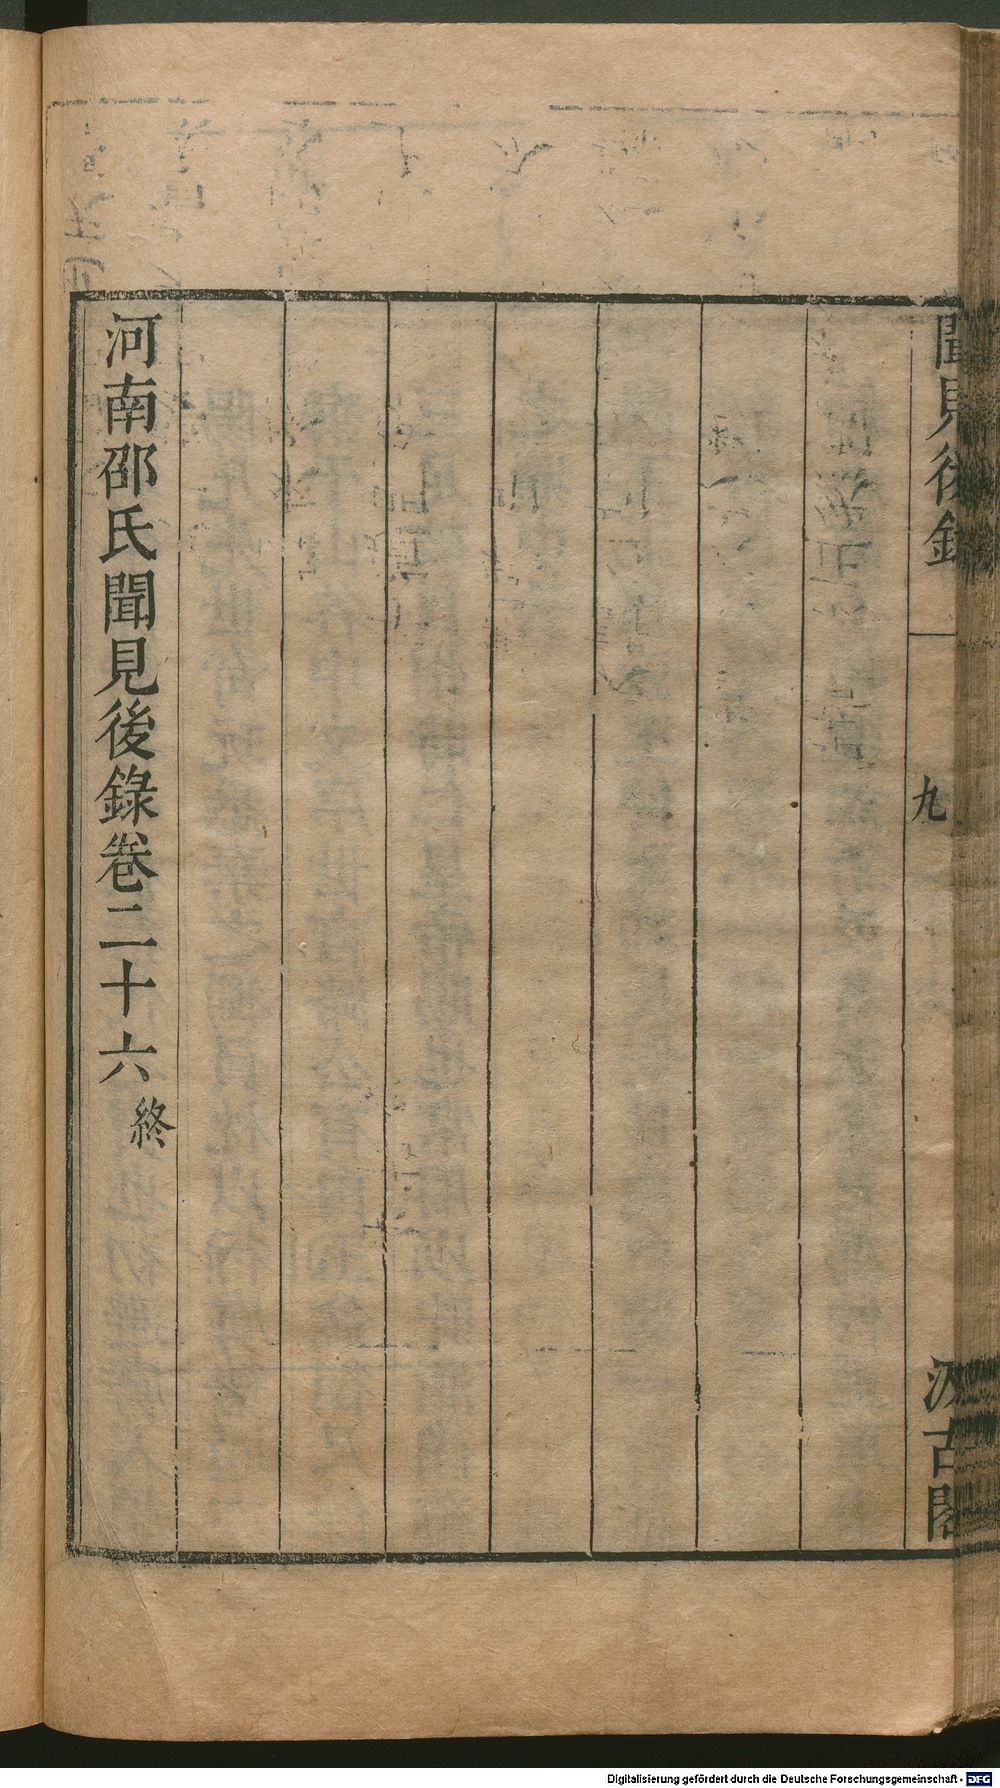 聞見後錄
九
汲古閣
河南邵氏聞見後錄卷二十六終
Digitalisierung gefördert durch die Deutsche Forschungsgemeinschaft - DFG